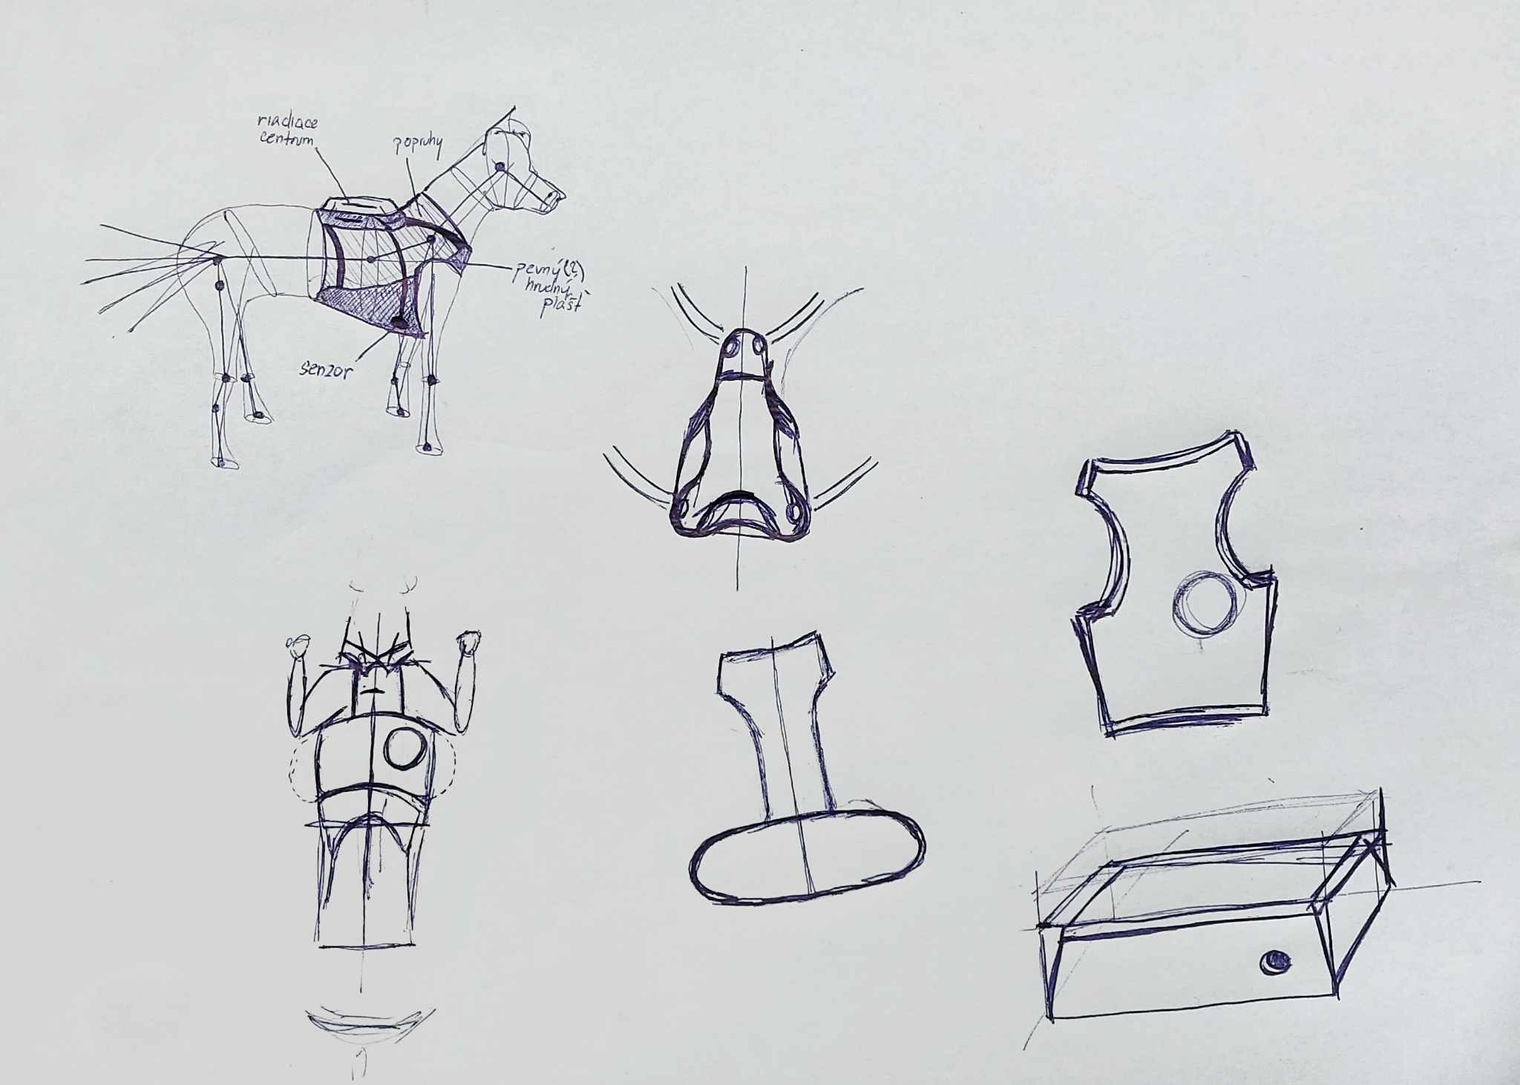 riadiace
centrum
popruhy
pevný(?)
hrudný
plášť
senzor